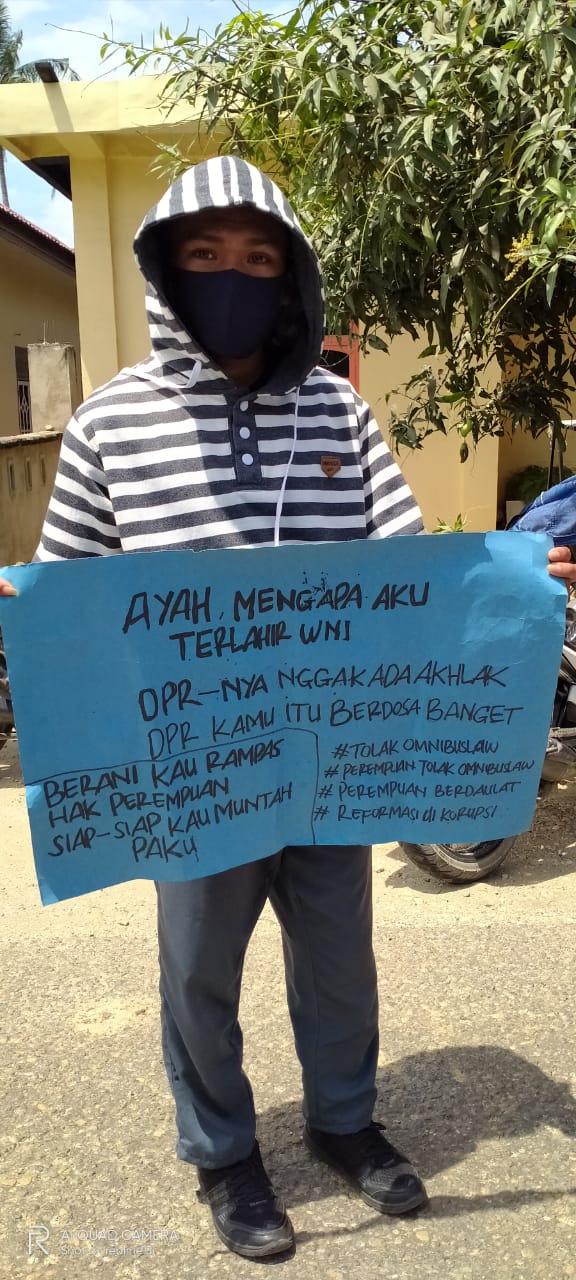 AYAH, MENGAPA AKU
TERLAHIR WNI
DPR-NYA NGGAK ADA AKHLAK
DPR KAMU ITU BERDOSA BANGET
BERANI KAU RAMPAS
HAK PEREMPUAN
SIAP-SIAP KAU MUNTAH
PAKU
#TOLAK OMNIBUSLAW
#PEREMPUAN TOLAK OMNIBUSLAW
# PEREMPUAN BERDAULAT
# REFORMASI di KORUPSI
R
AI QUAD CAMERA